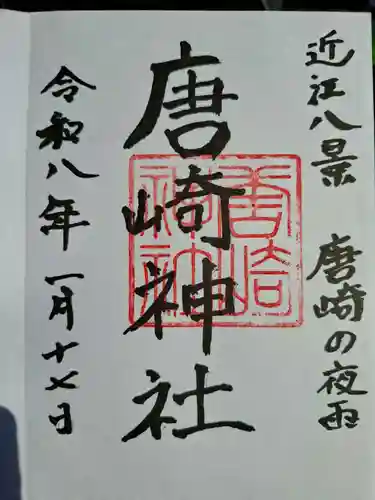 近江八景 唐崎の夜雨
唐崎神社
唐崎神社
令和八年一月十七日